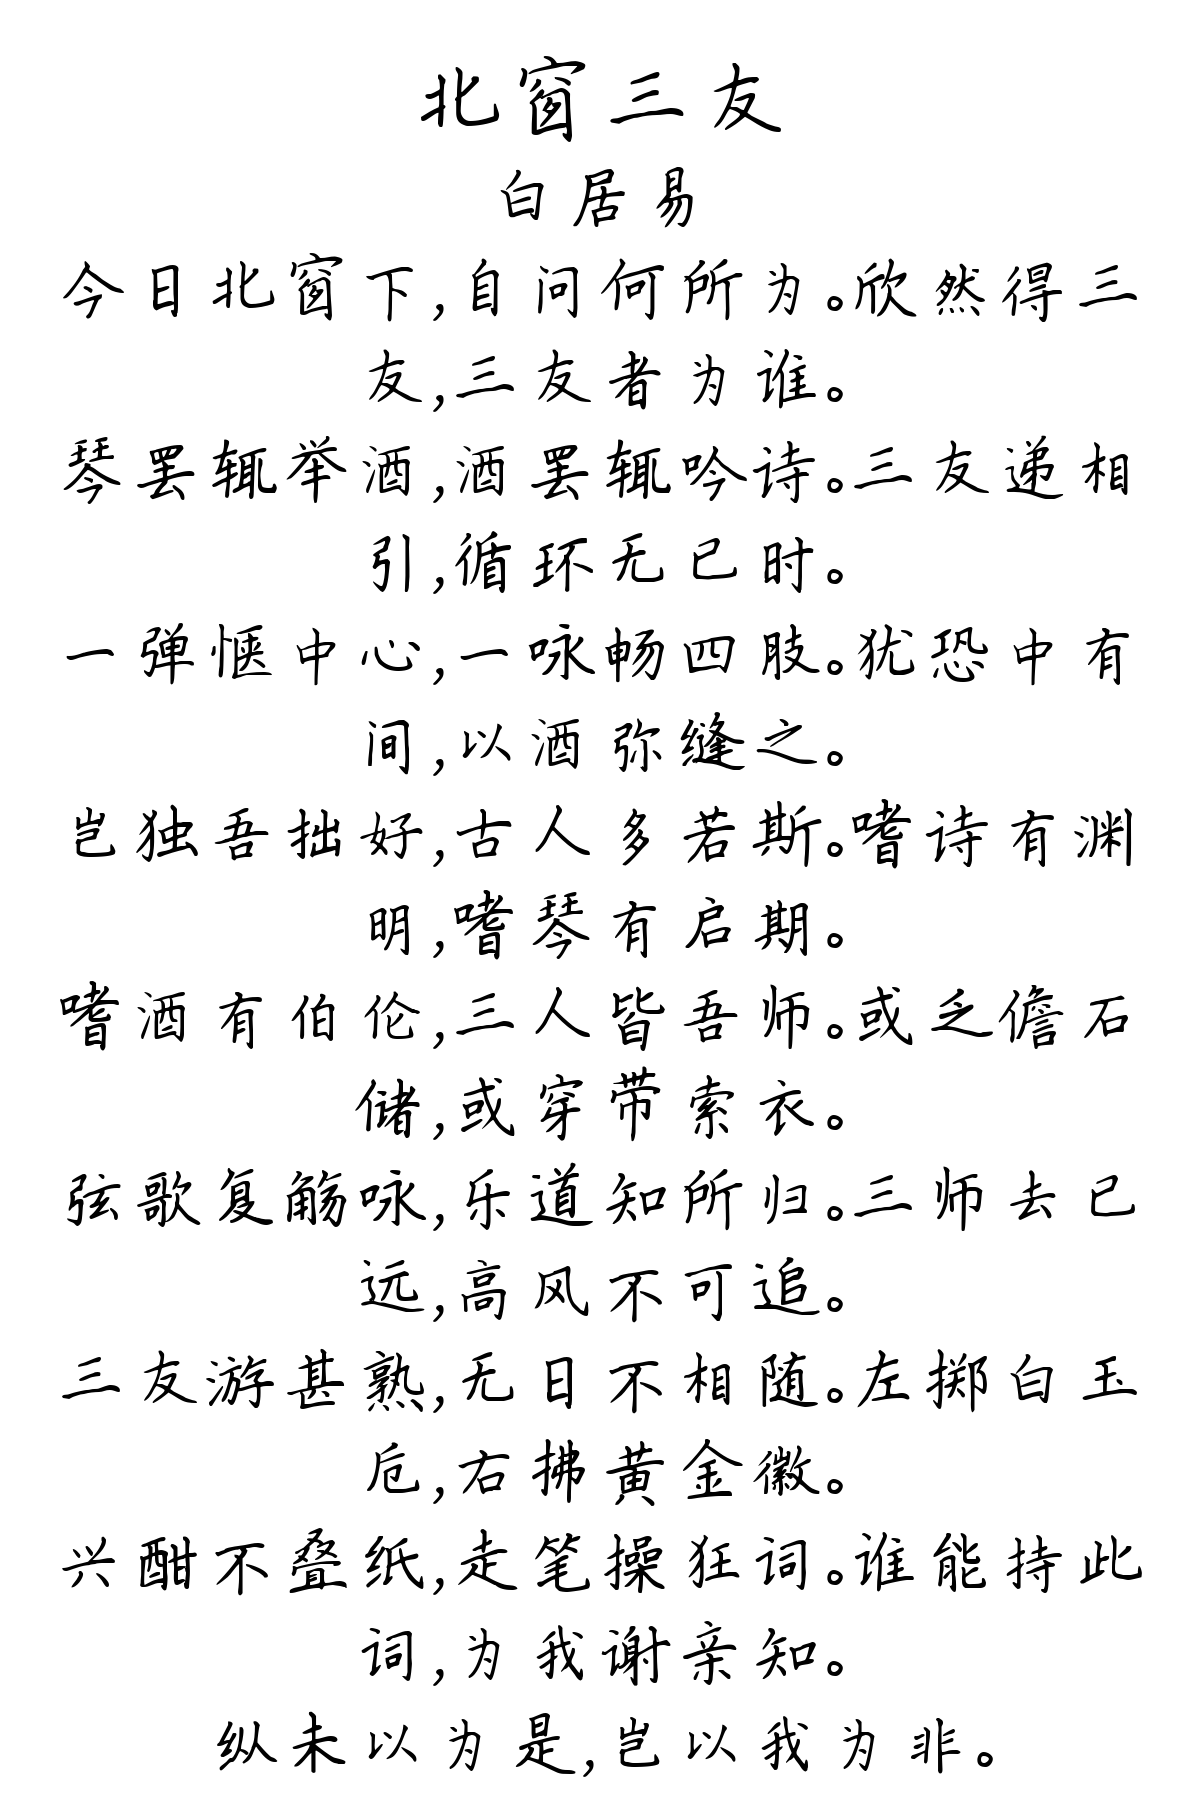 北窗三友
白居易
今日北窗下,自问何所为。欣然得三
友,三友者为谁。
琴罢辄举酒,酒罢辄吟诗。三友递相
引,循环无已时。
一弹惬中心,一咏畅四肢。犹恐中有
间,以酒弥缝之。
岂独吾拙好,古人多若斯。嗜诗有渊
明,嗜琴有启期。
嗜酒有伯伦,三人皆吾师。或乏儋石
储,或穿带索衣。
弦歌复觞咏,乐道知所归。三师去已
远,高风不可追。
三友游甚熟,无日不相随。左掷白玉
卮,右拂黄金徽。
兴酣不叠纸,走笔操狂词。谁能持此
词,为我谢亲知。
纵未以为是,岂以我为非。